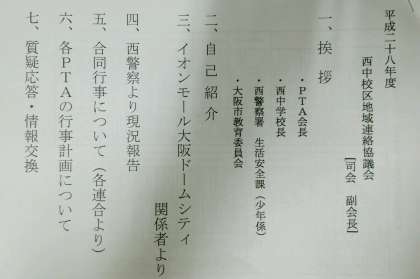 平成二十八年度
西中校区地域連絡協議会
[司会 副会長]
一、挨拶
・PTA会長
・西中学校長
・西警察署 生活安全課(少年係)
・大阪市教育委員会
二、自己紹介
三、イオンモール大阪ドームシティ
関係者より
四、西警察より現況報告
五、合同行事について(各連合より)
六、各PTAの行事計画について
七、質疑応答・情報交換